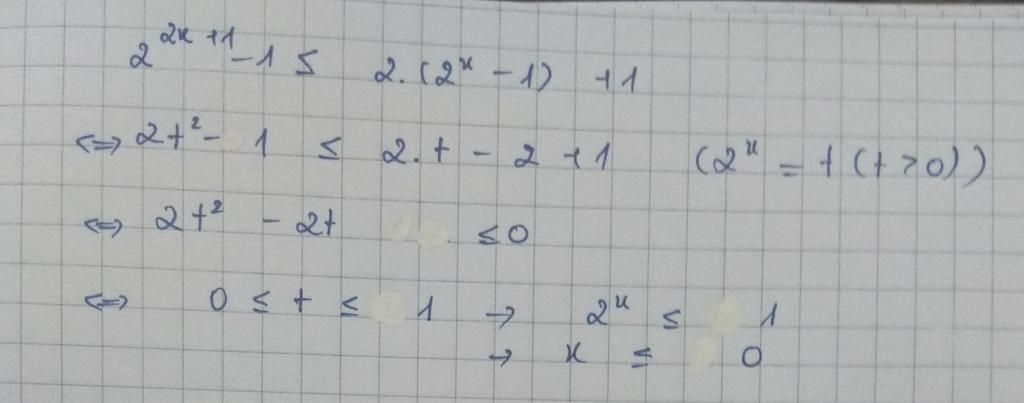 2^{2x+1} - 1 ≤ 2.(2^x - 1) + 1
⇔ 2t² - 1 ≤ 2.t - 2 + 1 (2^x = t (t > 0))
⇔ 2t² - 2t ≤ 0
⇔ 0 ≤ t ≤ 1 → 2^x ≤ 1
→ x ≤ 0